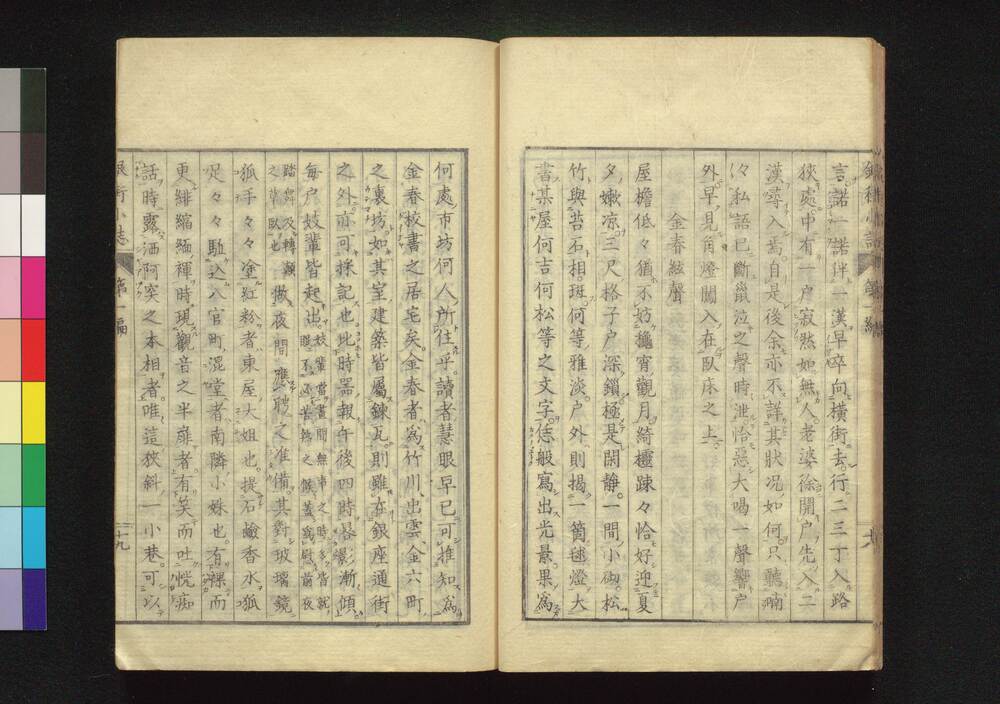 言諾一諾伴一漢早卒向橫街去行二三丁入路
狹處中有一户寂然如無人老婆徐開户先入二
漢尋入焉自是後余亦不詳其狀况如何只聽喃
々私語已斷皷泣之聲時泄恰惡大喝一聲響户
外早見角燈闖入在臥床之上
金春絃聲
屋檐低々猶不妨櫳宵觀月綺櫺踈々恰好迎夏
夕嫩凉三尺格子户深鎖極是閑静一間小砌松
竹與苔石相斑何等雅淡户外則揭一箇毬燈大
書某屋何吉何松等之文字恁般寫出光景果爲
何處市坊何人所住乎讀者慧眼早已可推知爲
金春校書之居宅矣金春者爲竹川出雲金六町
之裏坊如其室建築皆屬鍊瓦則雖在銀座通街
之外亦可採記也此時器報午後四時晷影漸傾
每户妓輩皆起出妓輩當晝間無事之時多皆就
睡不
踏舞及轉
之草臥也做夜間應聘之准備其對玻璃鏡
狐手々塗紅粉者東屋大姐也提石鹼香水狐
足々馳込八官町湯堂者南隣小姝也有裸而
更緋縮緬褌時現觀音之半扉者有笑而吐恍痴
話時露洒阿突之本相者唯這狹斜一小巷可以
銀街小誌
第一編
十九